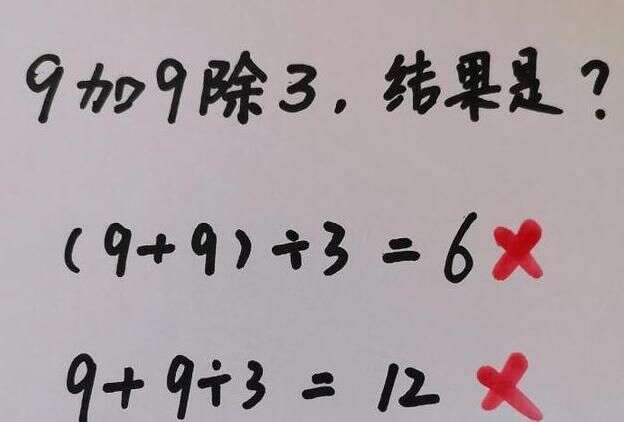 9加9除3,结果是?
(9+9)÷3=6×
9+9÷3=12×